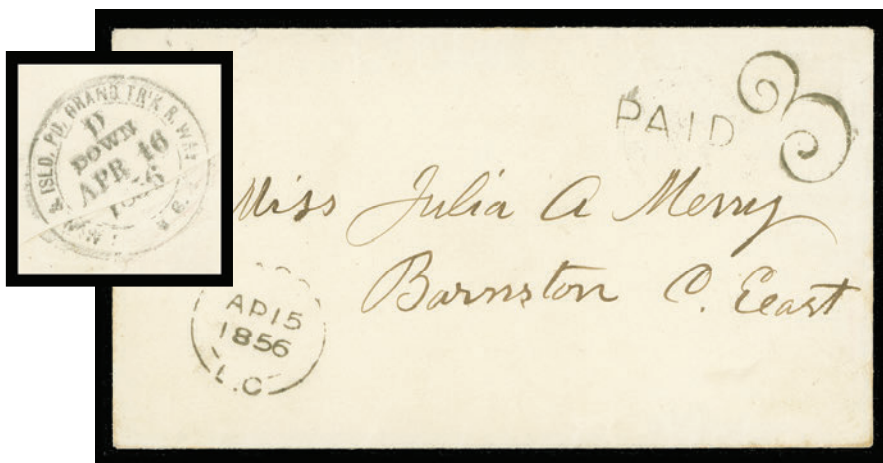 & ISLD. PD. GRAND TR'K R. WAY
D
DOWN
APR 16
1856
PAID 3
Miss Julia A Merry
Barnston C. East
AP 15
1856
L.C